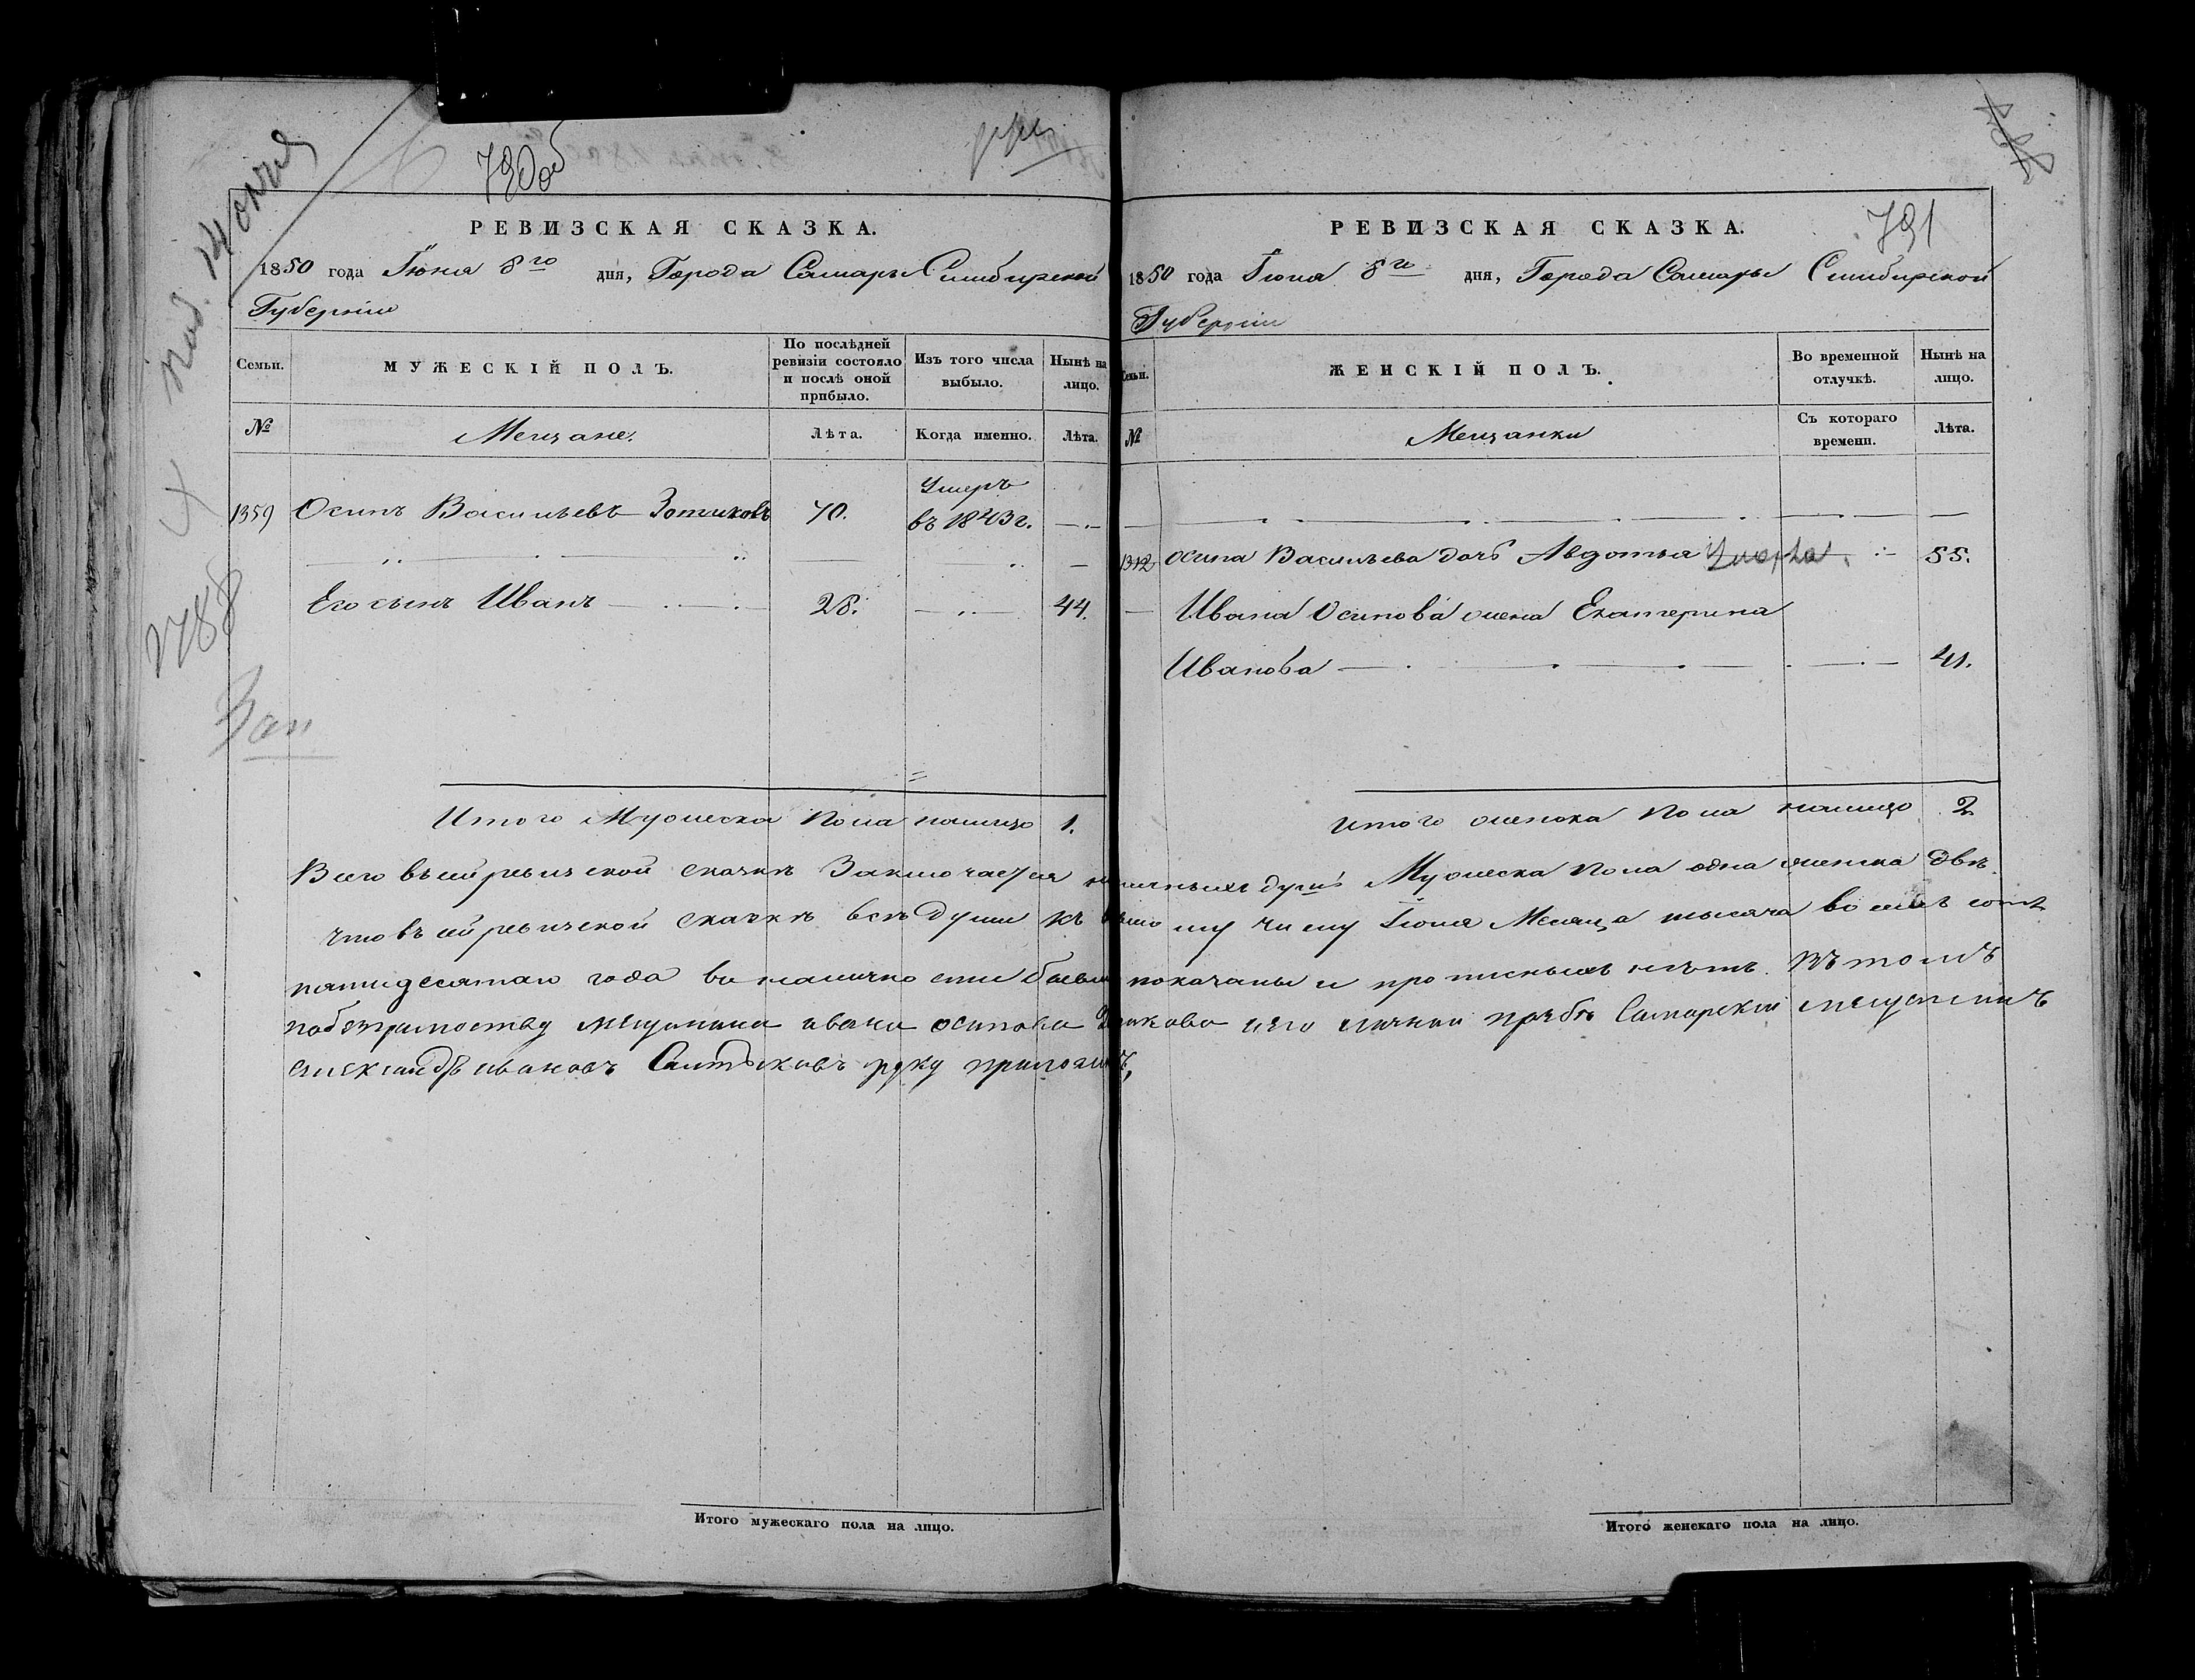 под. 14 окт.
790об
РЕВИЗСКАЯ СКАЗКА.
1850 года Іюня 8го дня, Города Самары Симбирской
Губерніи
Семьи.
МУЖЕСКІЙ ПОЛЪ.
По послѣдней ревизіи состояло и послѣ оной прибыло.
Изъ того числа выбыло.
Нынѣ на лицо.
№
Мещане.
Лѣта.
Когда именно.
Лѣта.
Умеръ
1359 Осипъ Васильевъ Зотиковъ 70. въ 1843 г.
Его сынъ Иванъ 28. 44.
2788
Зап
Итого Мужеска Пола налицо 1.
791
РЕВИЗСКАЯ СКАЗКА.
1850 года Іюня 8го дня, Города Самары Симбирской
Губерніи
Семьи.
ЖЕНСКІЙ ПОЛЪ.
Во временной отлучкѣ.
Нынѣ на лицо.
№
Мещанки
Съ котораго времени.
Лѣта.
1312 Осипа Васильева дочь Авдотья 55.
Ивана Осипова жена Екатерина
Иванова 41.
Итого женска Пола налицо 2
Всего въ сей ревизской сказкѣ Заключается наличныхъ душъ Мужеска Пола одна женска двѣ.
что въ сей ревизской сказкѣ всѣ души къ ему числу Іюня Месяца тысяча восемь сотъ
пятидесятаго года въ наличности были показаны и прописныхъ нѣтъ. Въ томъ
побезграмоству мещанина ивана осипова Зотикова иего личной прозбѣ Самарский мещенинъ
александръ ивановъ Салтыковъ руку приложилъ,
Итого мужескаго пола на лицо.
Итого женскаго пола на лицо.